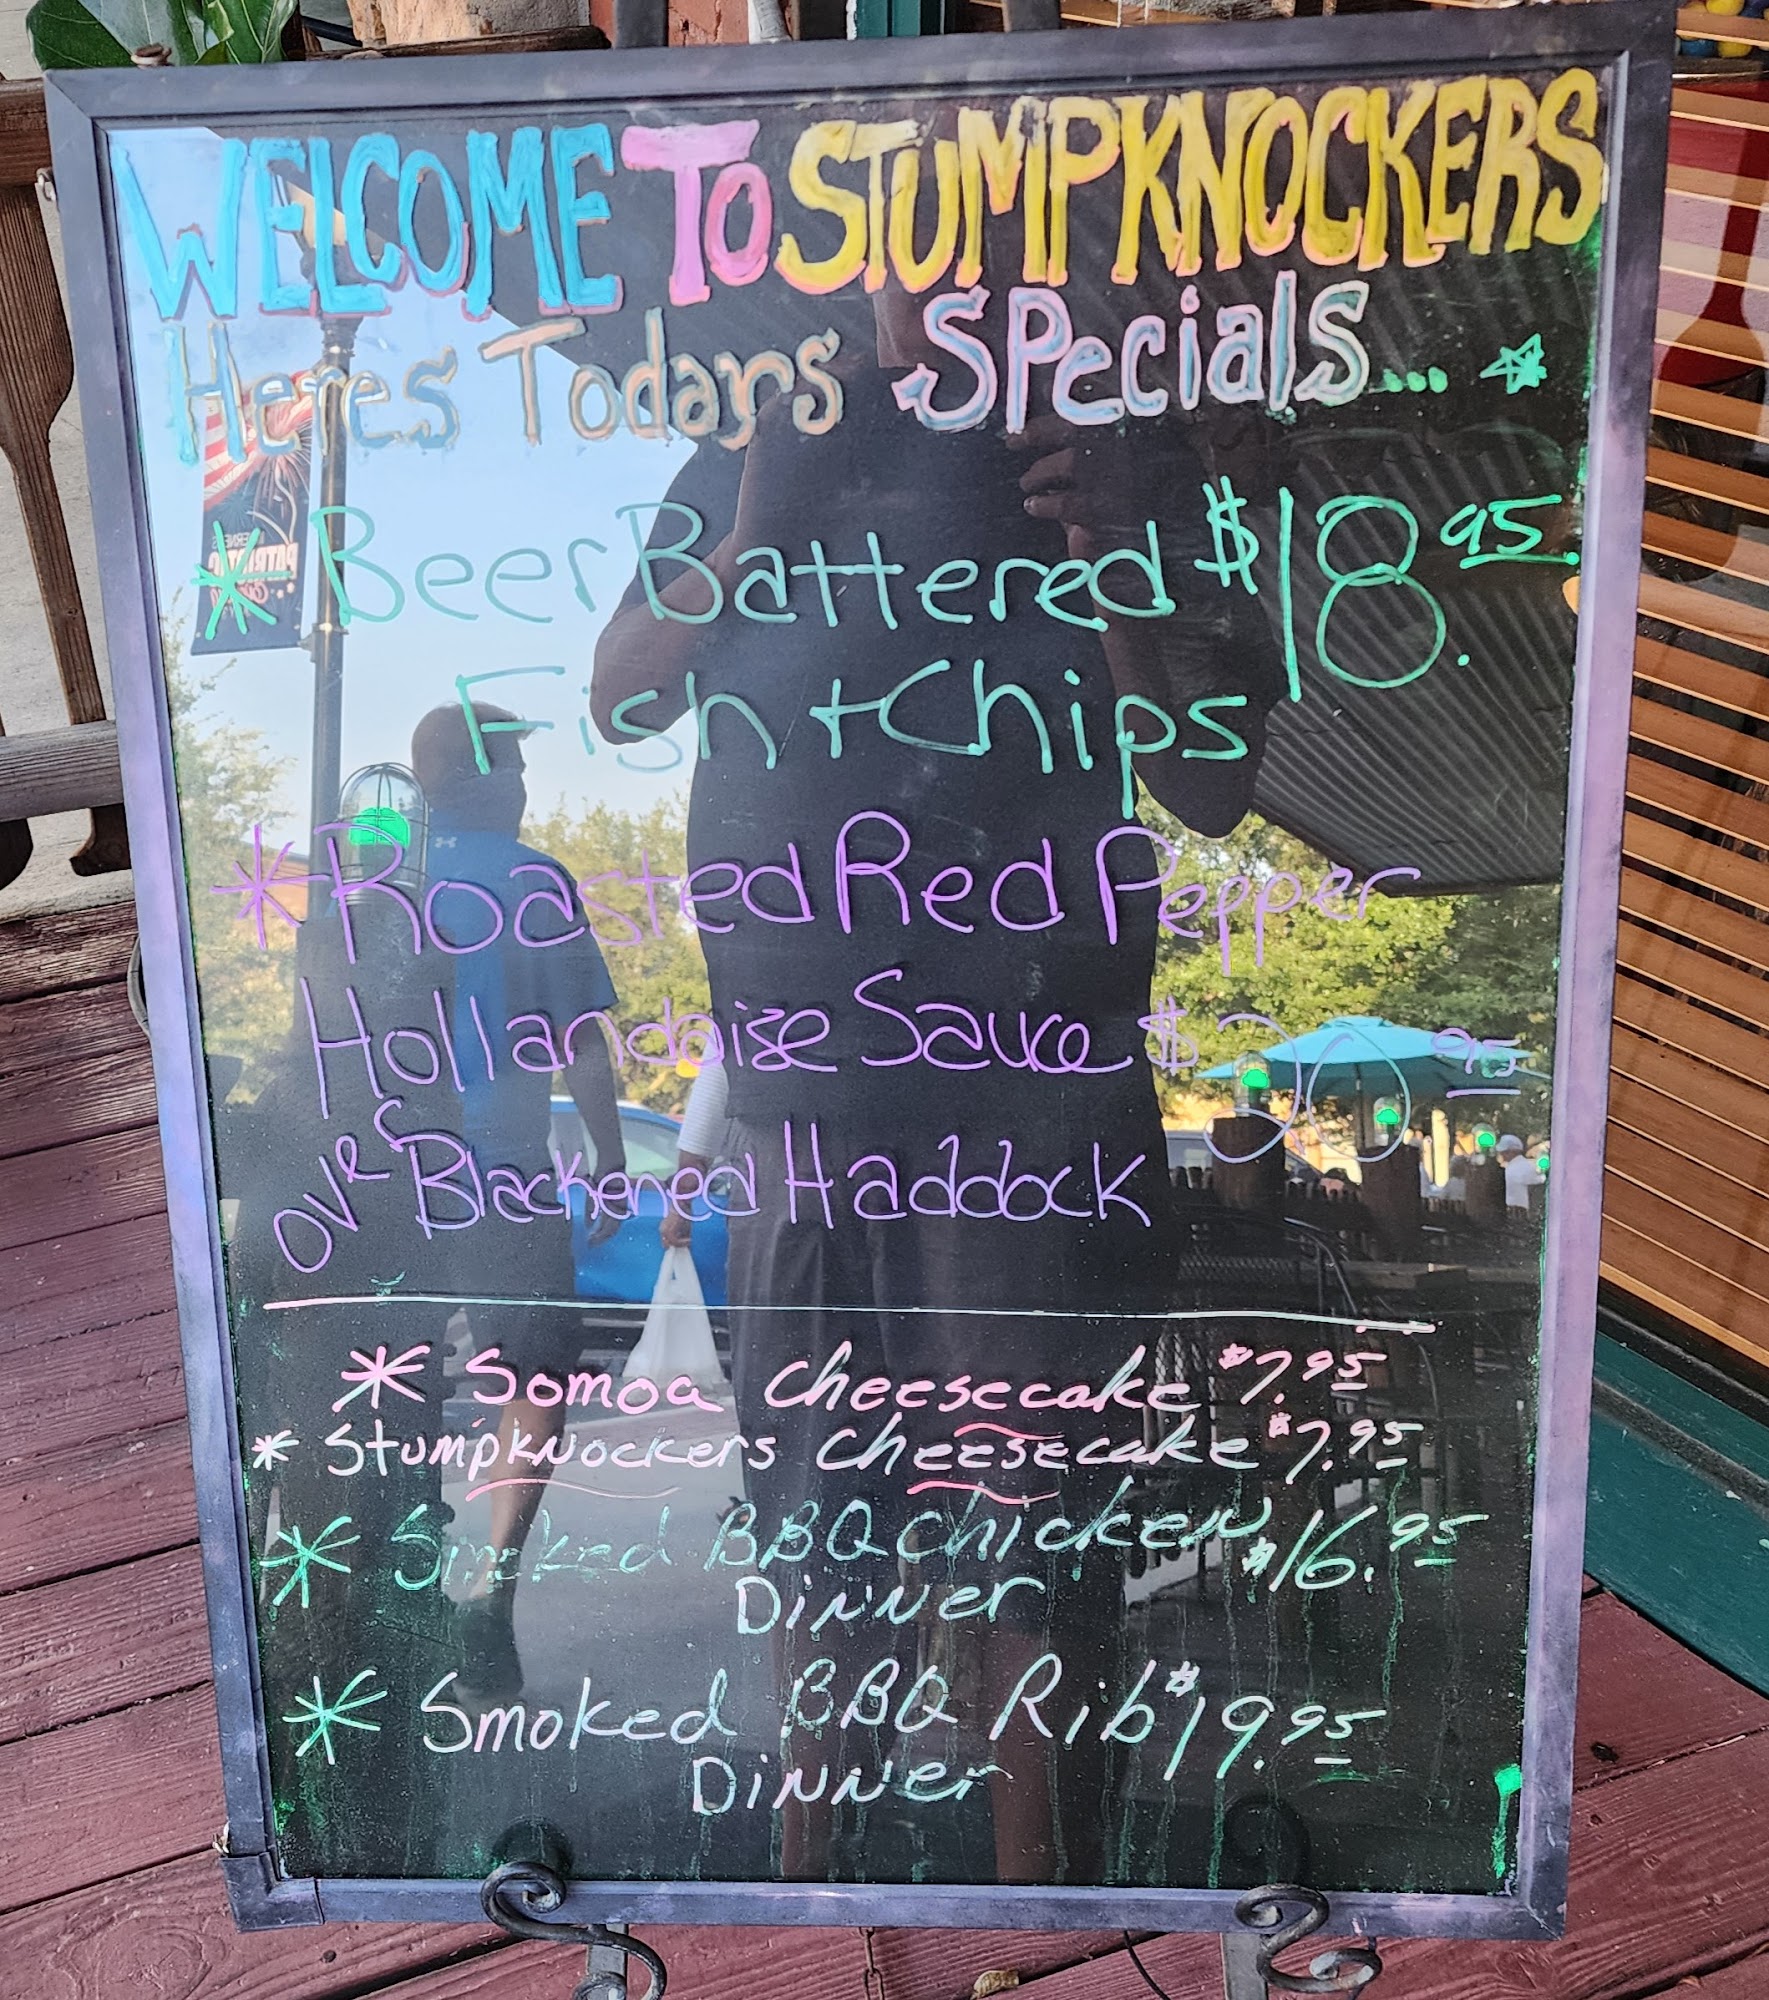 WELCOME TO STUMPKNOCKERS
Heres Todays SPecials...
* Beer Battered $18.95
Fish + Chips
* Roasted Red Pepper
Hollandaise Sauce $20.95
over Blackened Haddock
* Somoa Cheesecake $7.95
* Stumpknockers Cheesecake $7.95
* Smoked BBQ Chicken $16.95
Dinner
* Smoked BBQ Rib $19.95
Dinner